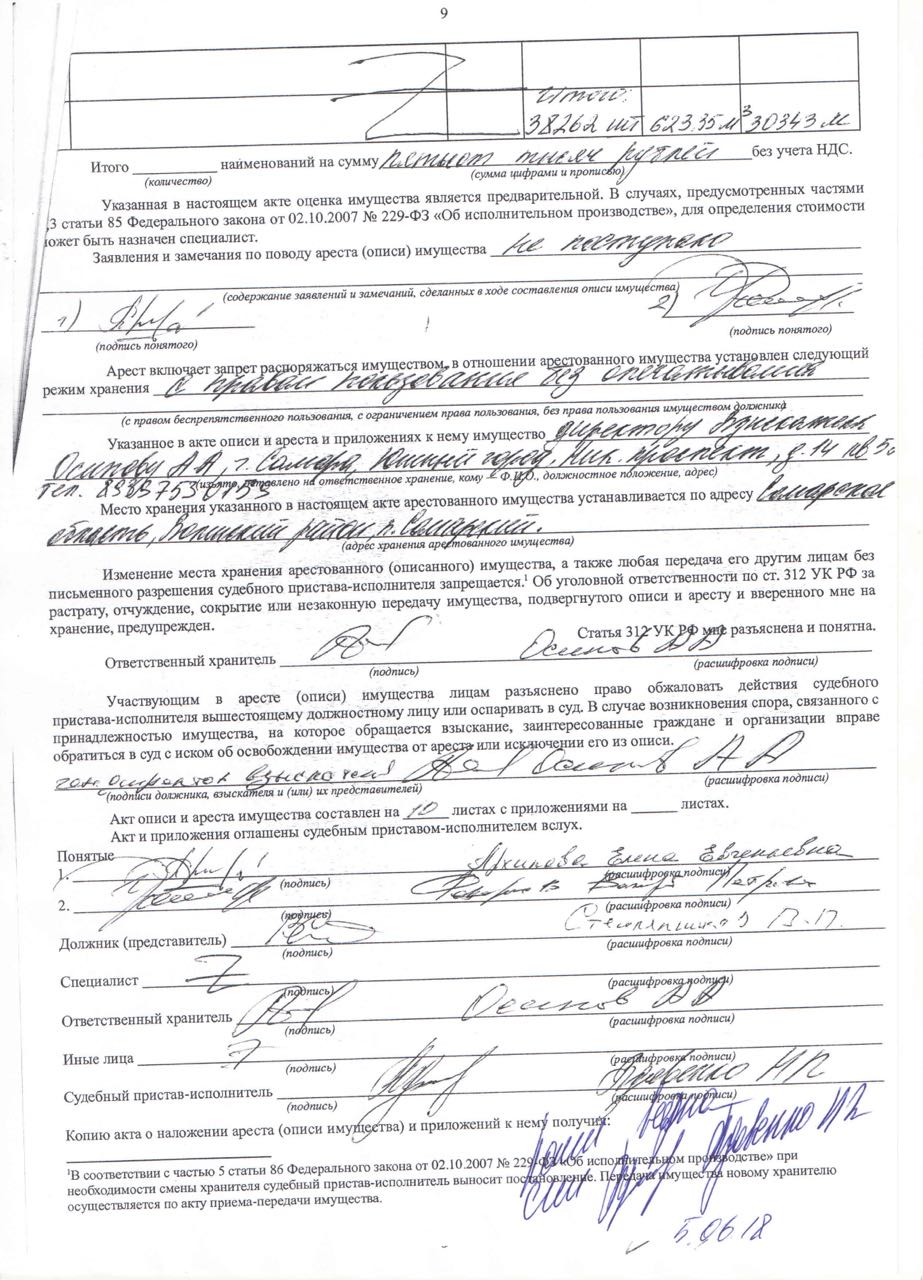 9
Итого:
38262 шт 623.35 м3 30343 м
Итого наименований на сумму пятьсот тысяч рублей без учета НДС.
(количество) (сумма цифрами и прописью)
Указанная в настоящем акте оценка имущества является предварительной. В случаях, предусмотренных частями
,3 статьи 85 Федерального закона от 02.10.2007 № 229-ФЗ «Об исполнительном производстве», для определения стоимости
может быть назначен специалист.
Заявления и замечания по поводу ареста (описи) имущества не поступало
(содержание заявлений и замечаний, сделанных в ходе составления описи имущества)
1) 2)
(подпись понятого) (подпись понятого)
Арест включает запрет распоряжаться имуществом, в отношении арестованного имущества установлен следующий
режим хранения с правом пользования без опечатывания
(с правом беспрепятственного пользования, с ограничением права пользования, без права пользования имуществом должника)
Указанное в акте описи и ареста и приложениях к нему имущество директору Взыскателя
Осипову А А, г. Самара, Южный город, Ник. проспект, д. 14 кв 5
Тел.
(изъято, оставлено на ответственное хранение, кому – Ф.И.О., должностное положение, адрес)
Место хранения указанного в настоящем акте арестованного имущества устанавливается по адресу Самарская
область, район, п. Самарский.
(адрес хранения арестованного имущества)
Изменение места хранения арестованного (описанного) имущества, а также любая передача его другим лицам без
письменного разрешения судебного пристава-исполнителя запрещается.1 Об уголовной ответственности по ст. 312 УК РФ за
растрату, отчуждение, сокрытие или незаконную передачу имущества, подвергнутого описи и аресту и вверенного мне на
хранение, предупрежден.
Статья 312 УК РФ мне разъяснена и понятна.
Ответственный хранитель Осипов АА
(подпись) (расшифровка подписи)
Участвующим в аресте (описи) имущества лицам разъяснено право обжаловать действия судебного
пристава-исполнителя вышестоящему должностному лицу или оспаривать в суд. В случае возникновения спора, связанного с
принадлежностью имущества, на которое обращается взыскание, заинтересованные граждане и организации вправе
обратиться в суд с иском об освобождении имущества от ареста или исключении его из описи.
ген. директор взыскателя Осипов А А
(подписи должника, взыскателя и (или) их представителей) (расшифровка подписи)
Акт описи и ареста имущества составлен на 10 листах с приложениями на листах.
Акт и приложения оглашены судебным приставом-исполнителем вслух.
Понятые
1. Архипова Елена Евгеньевна
(подпись) (расшифровка подписи)
2. Петрович
(подпись) (расшифровка подписи)
Должник (представитель)
(подпись) (расшифровка подписи)
Специалист
(подпись) (расшифровка подписи)
Ответственный хранитель Осипов АА
(подпись) (расшифровка подписи)
Иные лица
(подпись) (расшифровка подписи)
Судебный пристав-исполнитель
(подпись) (расшифровка подписи)
Копию акта о наложении ареста (описи имущества) и приложений к нему получил:
1В соответствии с частью 5 статьи 86 Федерального закона от 02.10.2007 № 229-ФЗ «Об исполнительном производстве» при
необходимости смены хранителя судебный пристав-исполнитель выносит постановление. Передача имущества новому хранителю
осуществляется по акту приема-передачи имущества.
5.06.18